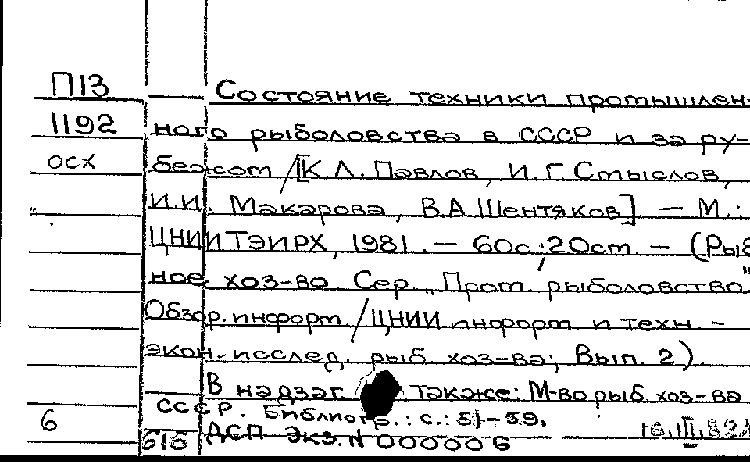 П13 Состояние техники промышлен-
1192 ного рыболовства в СССР и за ру-
осх бежом /[К.Л. Павлов, И.Г. Смыслов,
И.И. Макарова, В.А. Шентяков] — М.:
ЦНИИТЭИРХ, 1981. — 60с.; 20см. — (Рыб
ное хоз-во. Сер. Пром. рыболовство
Обзор. информ. / ЦНИИ информ. и техн.-
экон. исслед. рыб. хоз-ва; Вып. 2).
В надзаг. также: М-во рыб. хоз-ва
СССР. Библиогр.: с.: 51-59.
6 616 ДСП Экз. N 000006 16.III.82